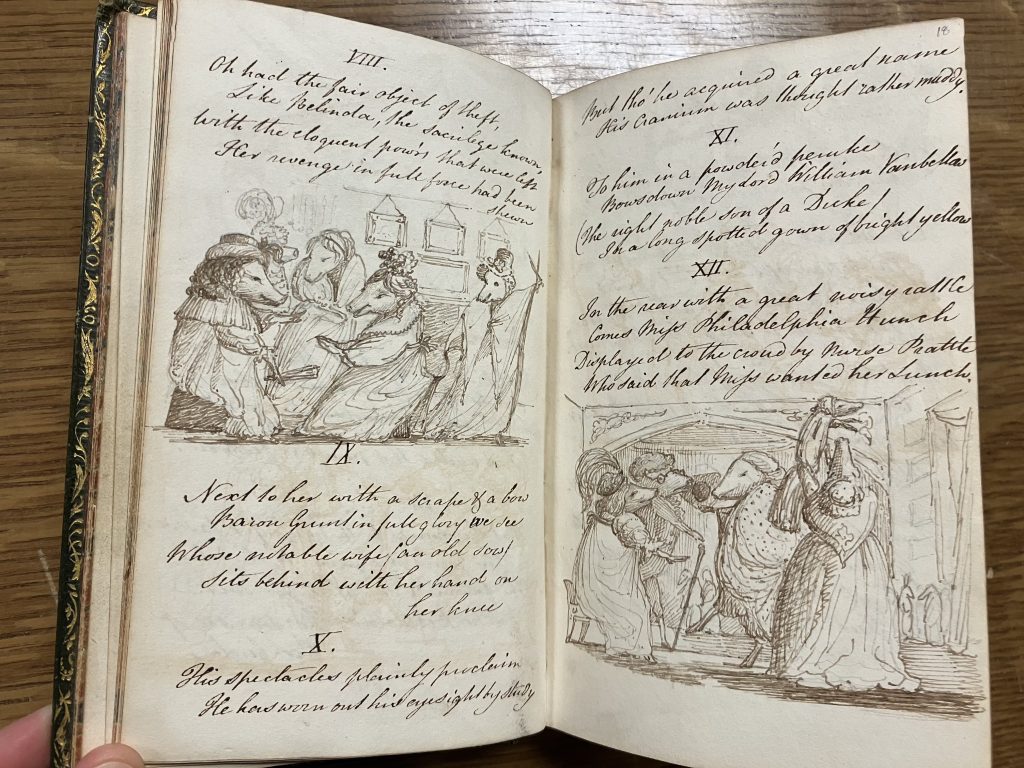 VIII.
Oh had the fair object of theft,
Like Belinda, the sacrilege known,
With the eloquent pow'rs that were left
Her revenge in full force had been
shewn
IX.
Next to her with a scrape & a bow
Baron Grunt in full glory we see
Whose notable wife (an old sow)
Sits behind with her hand on
her knee
X.
His spectacles plainly proclaim
He has worn out his eyesight by study
18
But tho' he acquired a great name
His Cranium was thought rather muddy.
XI.
To him in a powder'd peruke
Bows down My Lord William Vanbellow
(The right noble son of a Duke)
In a long spotted gown of bright yellow
XII.
In the rear with a great noisy rattle
Comes Miss Philadelphia Hunch
Displayed to the croud by Nurse Prattle
Who said that Miss wanted her Lunch.